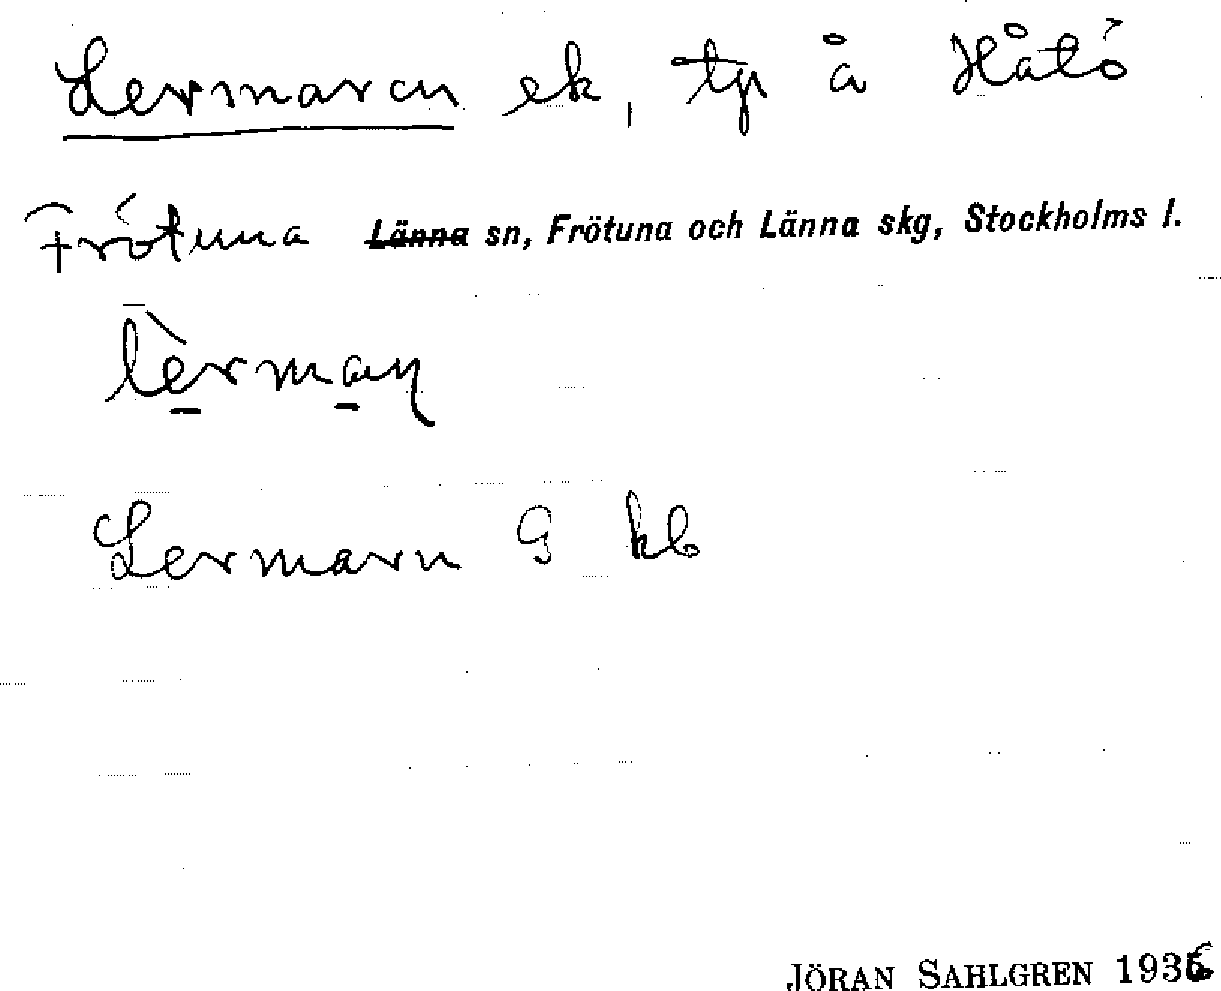 Lermaren ek, tp å Håtö
Frötuna Länna sn, Frötuna och Länna skg, Stockholms l.
lèrmaṇ
Lermarn G kb
JÖRAN SAHLGREN 1936